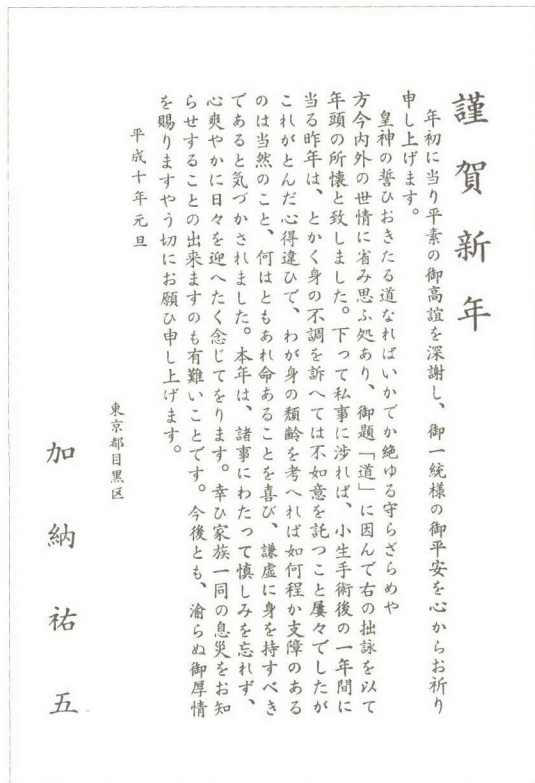 謹賀新年
年初に当り平素の御高誼を深謝し、御一統様の御平安を心からお祈り
申し上げます。
皇神の誓ひおきたる道なればいかでか絶ゆる守らざらめや
方今内外の世情に省み思ふ処あり、御題「道」に因んで右の拙詠を以て
年頭の所懐と致しました。下って私事に渉れば、小生手術後の一年間に
当る昨年は、とかく身の不調を訴へては不如意を託つこと屢々でしたが
これがとんだ心得違ひで、わが身の頽齢を考へれば如何程か支障のある
のは当然のこと、何はともあれ命あることを喜び、謙虚に身を持すべき
であると気づかされました。本年は、諸事にわたって慎しみを忘れず、
心爽やかに日々を迎へたく念じてをります。幸ひ家族一同の息災をお知
らせすることの出来ますのも有難いことです。今後とも、渝らぬ御厚情
を賜りますやう切にお願ひ申し上げます。
平成十年元旦
東京都目黒区
加納祐五